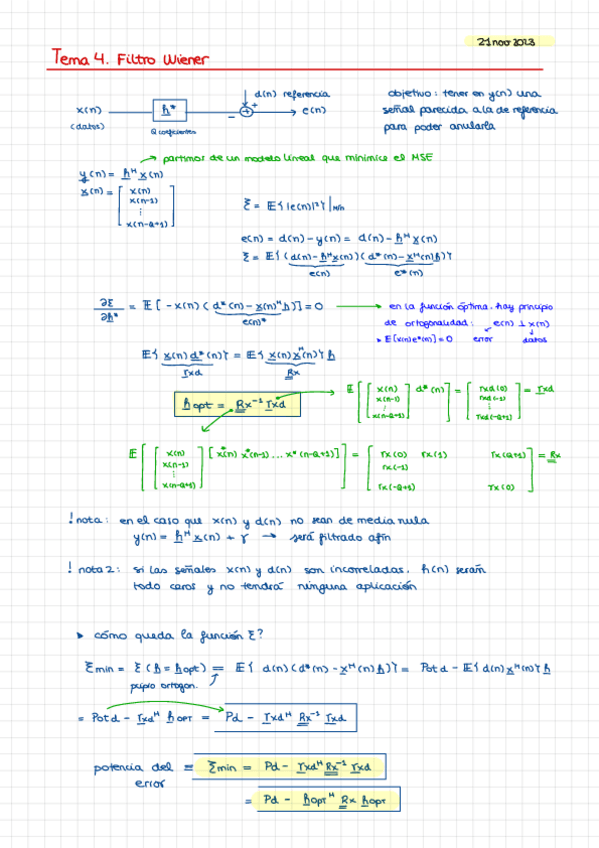 21 nov 2023
Tema 4. Filtro Wiener
d(n) referencia
x(n) h* + − e(n)
(datos) Q coeficientes
objetivo: tener en y(n) una
señal parecida a la de referencia
para poder anularla
→ partimos de un modelo lineal que minimice el MSE
y(n) = h^H x(n)
x(n) = [x(n) x(n-1) ⋮ x(n-Q+1)]
ξ = E{|e(n)|²}|min
e(n) = d(n) - y(n) = d(n) - h^H x(n)
ξ = E{(d(n) - h^H x(n))(d*(n) - x^H(n)h)}
e(n) e*(n)
∂ξ/∂h* = E[-x(n)(d*(n) - x(n)^H h)] = 0
e(n)*
→ en la función óptima, hay principio
de ortogonalidad: e(n) ⊥ x(n)
E[x(n)e*(n)] = 0 error datos
E{x(n) d*(n)} = E{x(n) x^H(n)} h
rxd Rx
h opt = Rx^-1 rxd
E[[x(n) x(n-1) ⋮ x(n-Q+1)] d*(n)] = [rxd(0) rxd(-1) ⋮ rxd(-Q+1)] = rxd
E[[x(n) x(n-1) ⋮ x(n-Q+1)] [x*(n) x*(n-1) ... x*(n-Q+1)]] = [rx(0) rx(1) rx(Q+1) rx(-1) rx(-Q+1) rx(0)] = Rx
! nota: en el caso que x(n) y d(n) no sean de media nula
y(n) = h^H x(n) + γ → será filtrado afín
! nota 2: si las señales x(n) y d(n) son incorreladas, h(n) serán
todo ceros y no tendrá ninguna aplicación
▸ cómo queda la función ξ?
ξmin = ξ(h = hopt) = E{d(n)(d*(n) - x^H(n)h)} = Pot d - E{d(n)x^H(n)}h
ppio ortogon.
= Pot d - rxd^H h OPT = Pd - rxd^H Rx^-1 rxd
potencia del = ξmin = Pd - rxd^H Rx^-1 rxd
error
= Pd - hopt^H Rx hopt